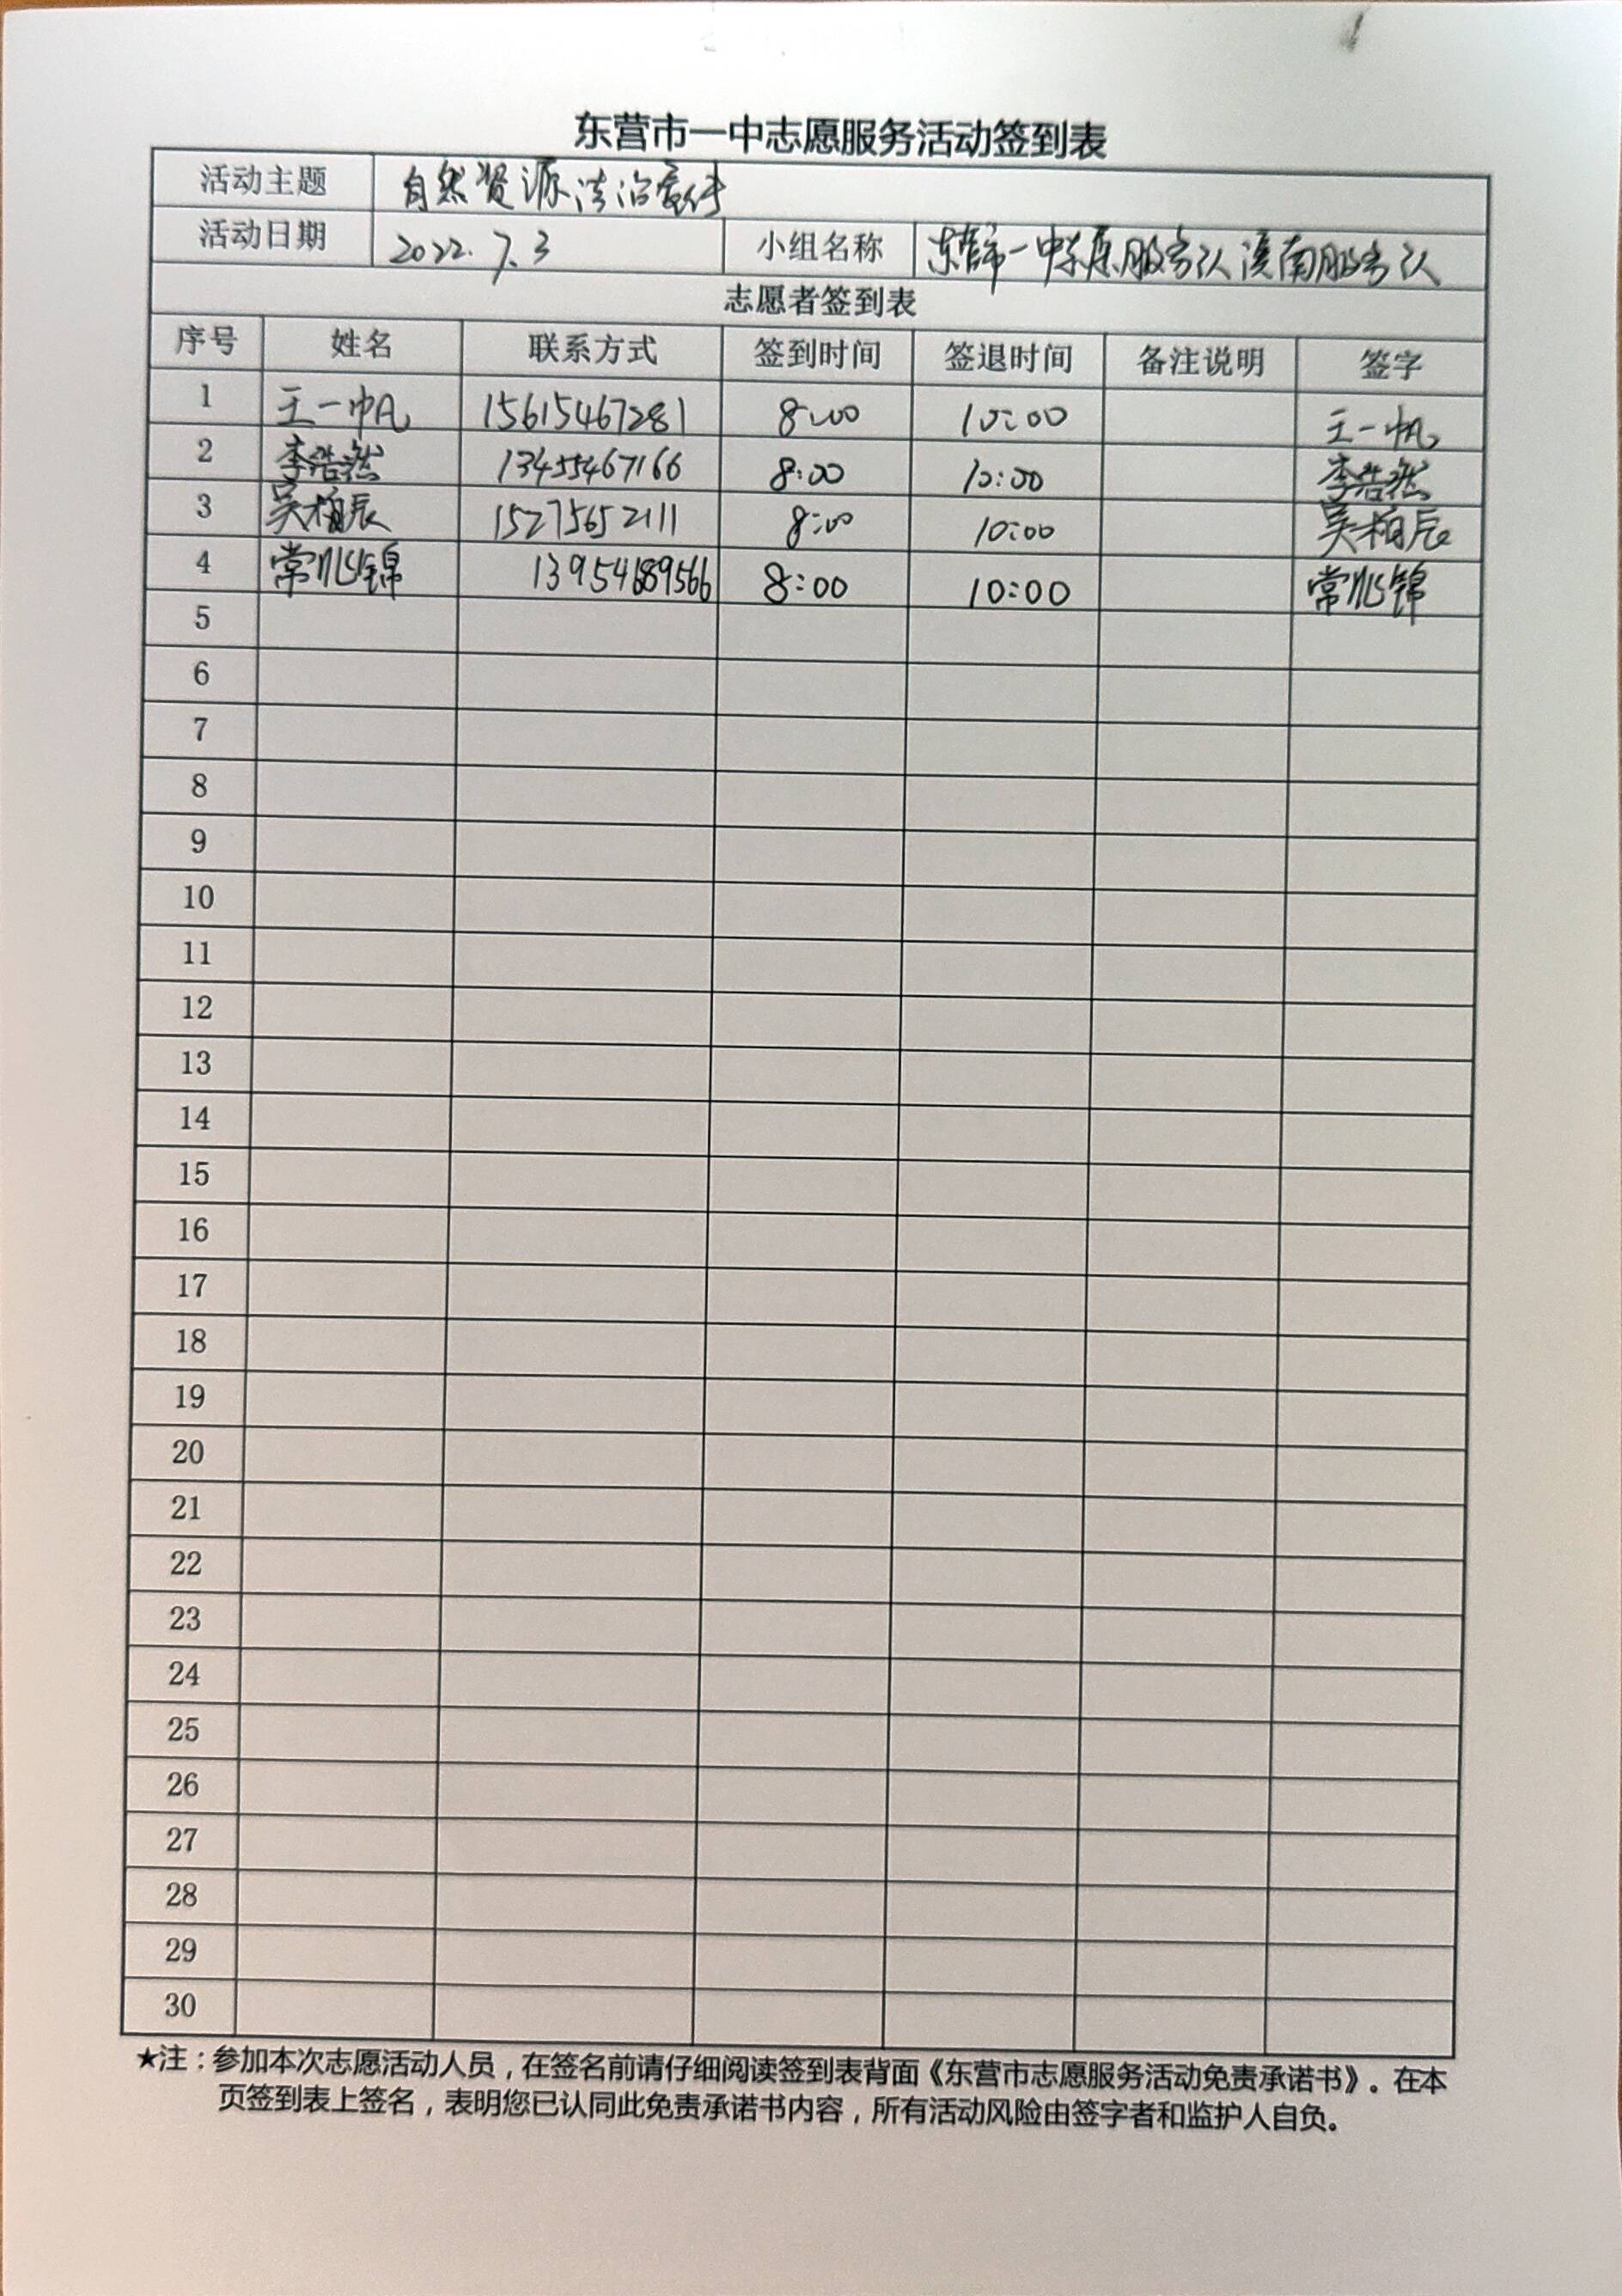 东营市一中志愿服务活动签到表
活动主题 自然资源法治宣传
活动日期 2022.7.3 小组名称 东营市一中东原服务队溪南服务队
志愿者签到表
序号 姓名 联系方式 签到时间 签退时间 备注说明 签字
1 王一帆 15615467281 8:00 10:00 王一帆
2 李浩然 13455467166 8:00 10:00 李浩然
3 吴柏辰 15275652111 8:00 10:00 吴柏辰
4 常 锦 13954689566 8:00 10:00 常 锦
5
6
7
8
9
10
11
12
13
14
15
16
17
18
19
20
21
22
23
24
25
26
27
28
29
30
★注：参加本次志愿活动人员，在签名前请仔细阅读签到表背面《东营市志愿服务活动免责承诺书》。在本
页签到表上签名，表明您已认同此免责承诺书内容，所有活动风险由签字者和监护人自负。